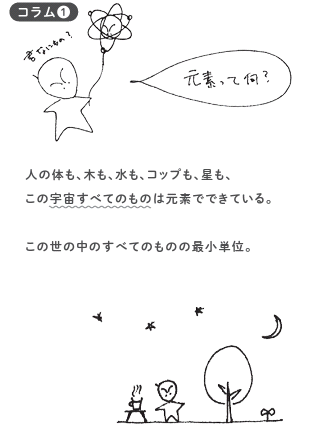 コラム1
元素って何?
人の体も、木も、水も、コップも、星も、
この宇宙すべてのものは元素でできている。
この世の中のすべてのものの最小単位。